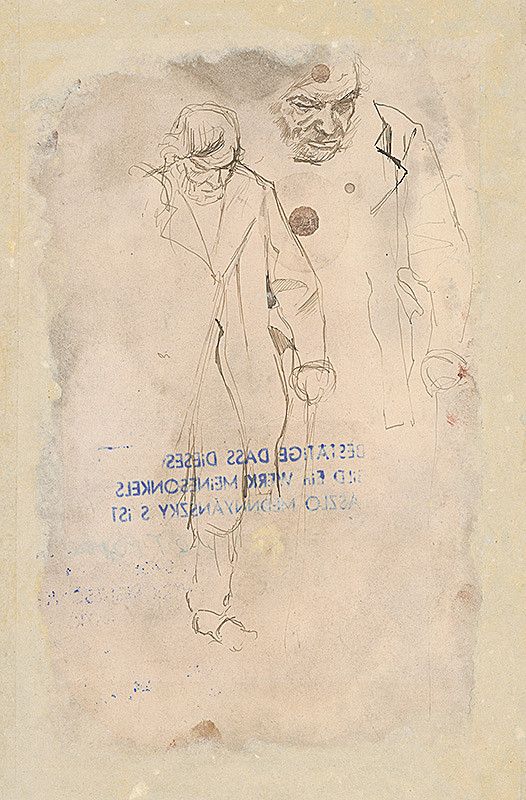 BESTÄTIGE DASS DIESES
BILD EIN WERK MEINESONKELS
LASZLO MEDNNYÁNSZKY S IST